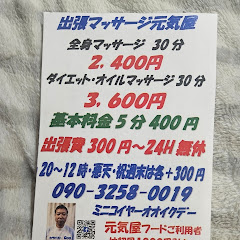 出張マッサージ元気屋
全身マッサージ 30分
2.400円
ダイエット・オイルマッサージ30分
3.600円
基本料金5分400円
出張費300円～24H無休
20～12時・悪天・祝週末は各+300円
090-3258-0019
ミニコイヤーオオイクデー
元気屋フードご利用者